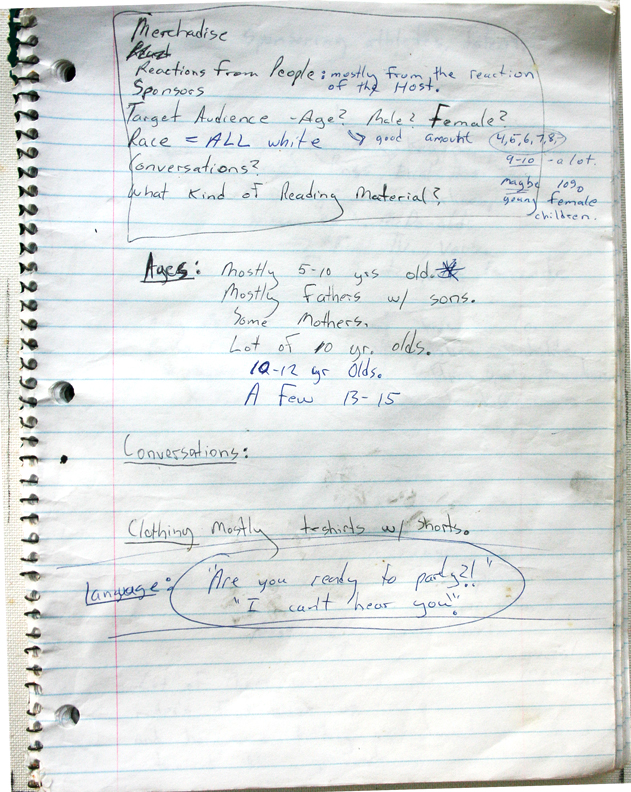 Merchadise
Reactions from People: mostly from the reaction
Sponsors of the Host.
Target Audience - Age? Male? Female?
Race = ALL white ↘ good amount 4,5,6,7,8,
9-10 - a lot.
Conversations?
maybe 10%
What Kind of Reading Material? young female
children.
Ages: Mostly 5-10 yrs old.
Mostly Fathers w/ sons.
Some Mothers.
Lot of 10 yr. olds.
10-12 yr Olds.
A Few 13-15
Conversations:
Clothing Mostly t-shirts w/ shorts.
Language: "Are you ready to party?!"
"I can't hear you".